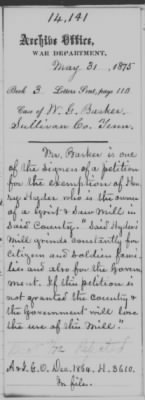 14,141
Archive Office,
WAR DEPARTMENT,
May 31, 1875
Book 3. Letters Sent, page 118
Case of W. G. Barker
Sullivan Co. Tenn.
Mr. Barker is one
of the signers of a petition
for the exemption of Hen-
ry Hyder who is the owner
of a Grist & Saw Mill in
said County. "Said Hyder's
Mill grinds constantly for
citizen and soldiers fami-
lies and also for the Govern-
ment. If this petition is
not granted the County &
the Government will lose
the use of this Mill."
A. & I. G. O. Dec. 1864. H. 3610.
In file.